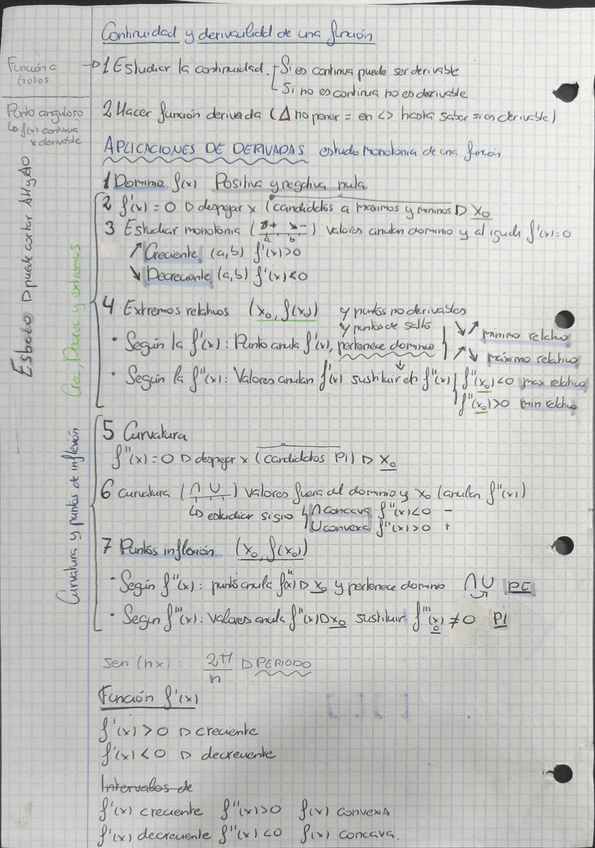 Continuidad y derivabilidad de una función
Función a
trozos
→ 1 Estudiar la continuidad. Si es continua puede ser derivable
Si no es continua no es derivable
Punto anguloso
↳ f(x) continua
x derivable
2 Hacer función derivada (△ no poner = en <> hasta saber si es derivable)
APLICACIONES DE DERIVADAS estudio monotonia de una función
Esbozo D puede cortar AH y AO
Crec, Decrec y extremos
1 Dominio f(x) Positiva y negativa nula
2 f'(x)=0 D despejar x (candidatos a maximos y minimos D x₀
3 Estudiar monotonia valores anulan dominio y al igualar f'(x)=0
↗ Creciente (a,b) f'(x)>0
↘ Decreciente (a,b) f'(x)<0
4 Extremos relativos (x₀, f(x₀)) y puntos no derivables
y puntos de salto
· Según la f'(x): Punto anula f'(x), pertenece dominio ↘↗ minimo relativo
↗↘ máximo relativo
· Según la f''(x): Valores anulan f'(x) sustituir en f''(x) f''(x₀)<0 max relativo
f''(x₀)>0 min relativo
Curvatura y puntos de inflexión
5 Curvatura
f''(x)=0 D despejar x (candidatos PI) D x₀
6 Curvatura (∩ ∪) valores fuera del dominio y x₀ (anulan f''(x))
↳ estudiar signo ∩ concava f''(x)<0 -
∪ convexa f''(x)>0 +
7 Puntos inflexión (x₀, f(x₀))
· Según f''(x): punto anula f''(x) D x₀ y pertenece dominio ∩∪ PI
· Según f'''(x): valores anula f''(x) D x₀ sustituir f'''(x₀) ≠ 0 PI
sen (nx) = 2π/n D PERIODO
Función f'(x)
f'(x) > 0 D creciente
f'(x) < 0 D decreciente
Intervalos de
f'(x) creciente f''(x)>0 f(x) convexa
f'(x) decreciente f''(x)<0 f(x) concava.